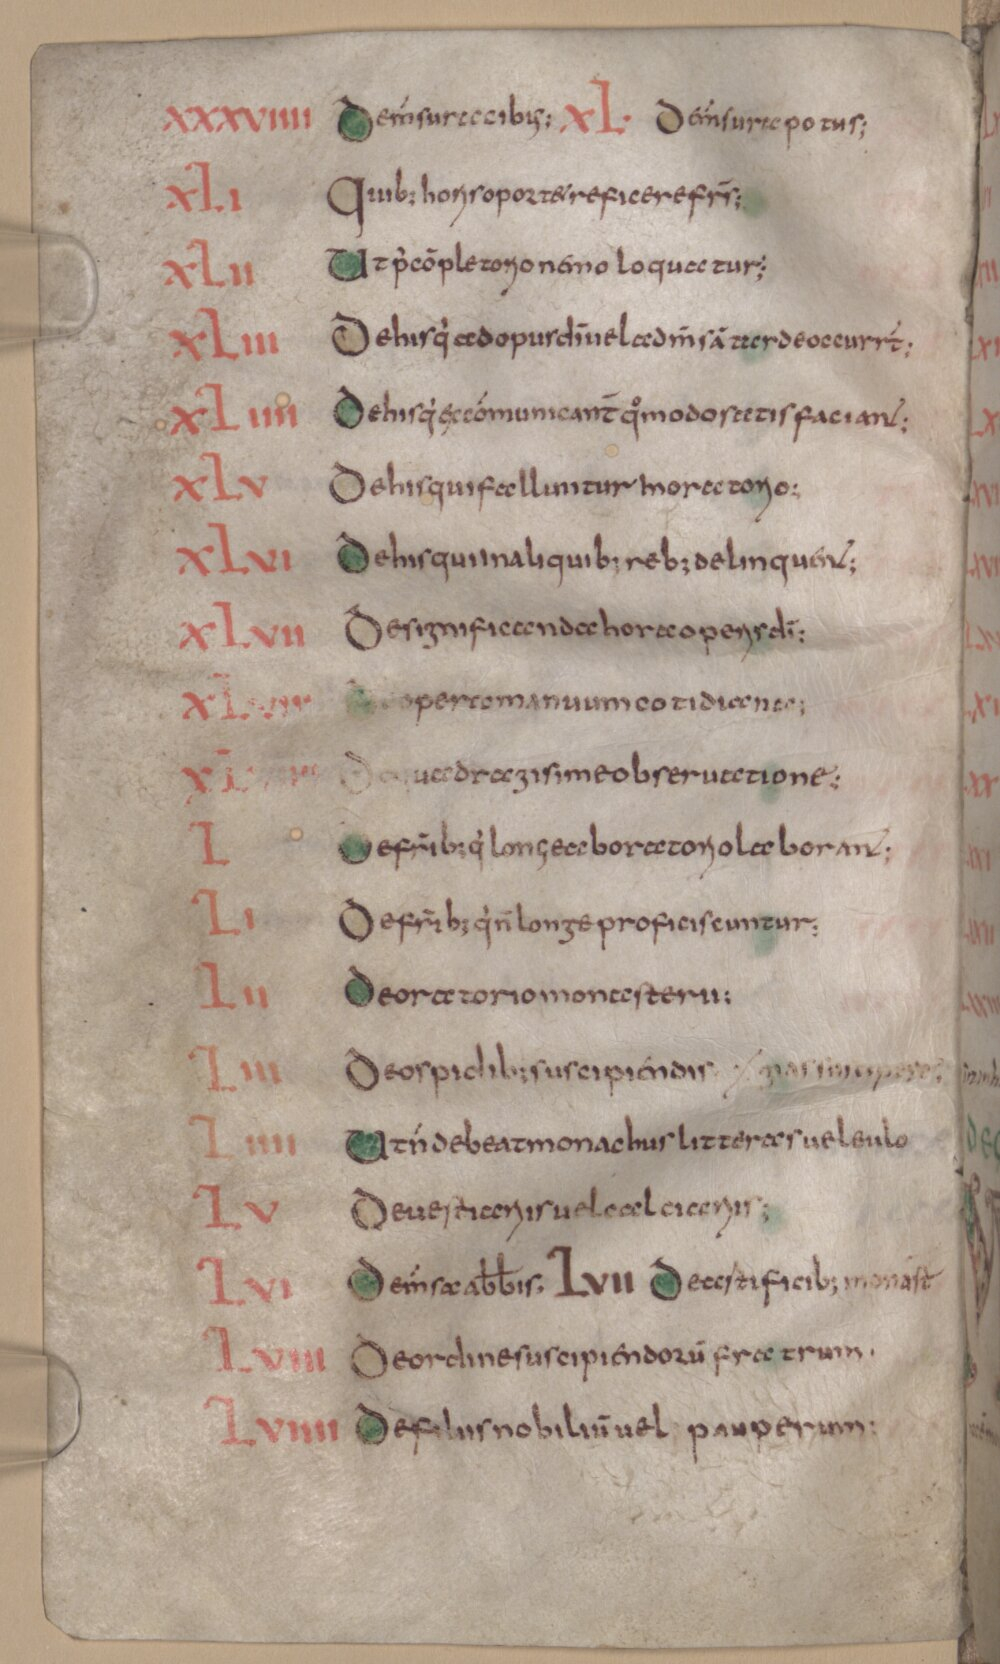 xxxviiii De m̄sura cibi; xL· De m̄sura potus;
xLi Quib; horis oportet reficere fr̄s;
xLii Ut p' cōpletorio nemo loquatur;
xLiii De his q' ad opus dī vel ad m̄sā tarde occurrt̄;
xLiiii De his q' excōmunicant̄ qomodo satisfaciant;
xLv De his qui falluntur in oratorio;
xLvi De his qui in aliquib; reb; delinquent;
xLvii De significanda hora operis dī;
xLviii opera manuum cotidiana;
xL quadragisime observatione;
L De fr̄ib; q' longe ab oratorio laborant;
Li De fr̄ib; q' n̄ longe proficiscuntur;
Lii De oratorio monasterii;
Liii De ospitib; suscipiendis
Liiii Ut n̄ debeat monachus litteras vel eulo
Lv De vestiariis vel calciariis;
Lvi De m̄sa abb̄is. Lvii De artificib; monast̄
Lviii De ordine suscipiendorū fratrum.
Lviiii De filiis nobiliū vel pauperum;